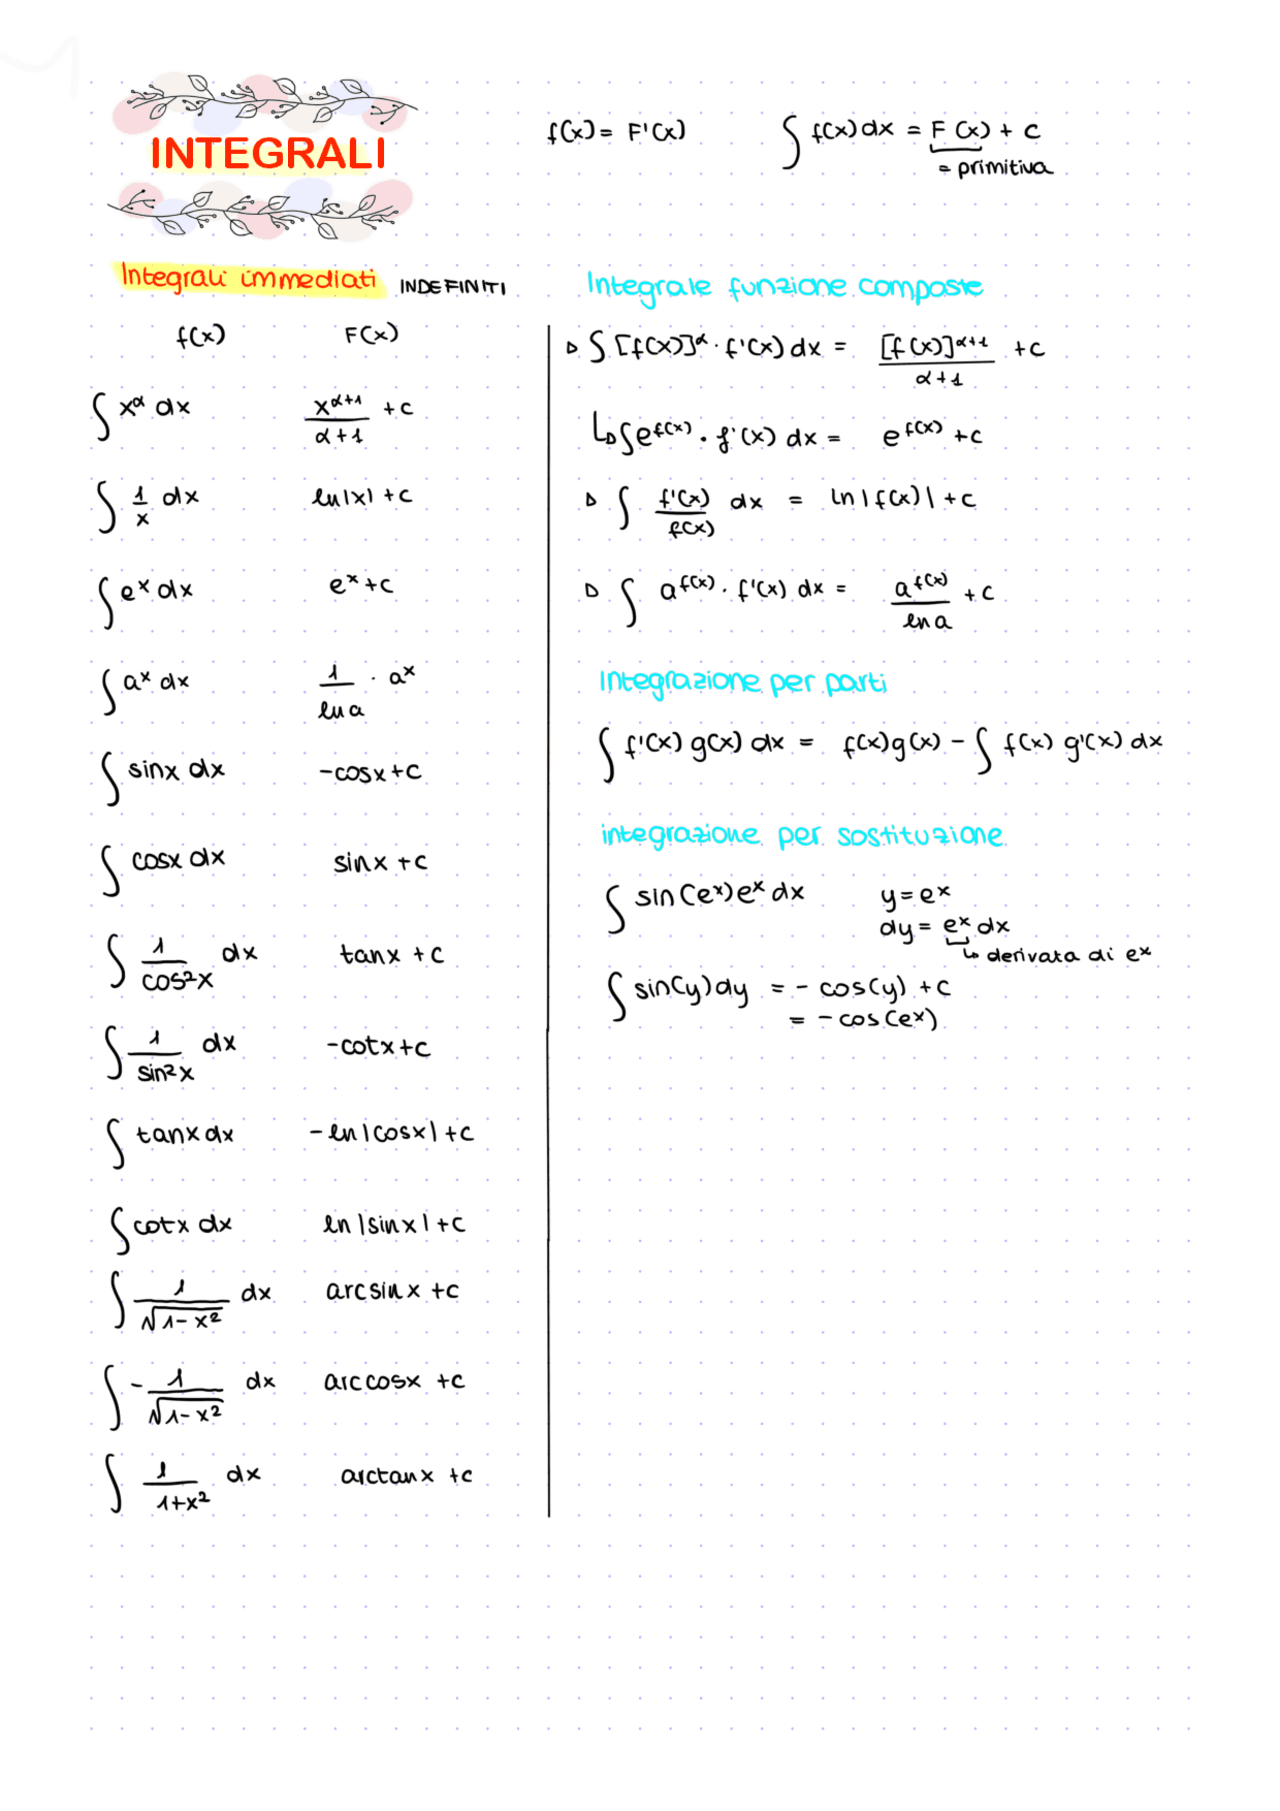 INTEGRALI
f(x) = F'(x)
∫ f(x) dx = F(x) + c
= primitiva
Integrali immediati INDEFINITI
f(x) F(x)
∫ x^α dx x^(α+1)/(α+1) + c
∫ 1/x dx ln|x| + c
∫ e^x dx e^x + c
∫ a^x dx 1/ln a · a^x
∫ sinx dx -cosx + c
∫ cosx dx sinx + c
∫ 1/cos²x dx tanx + c
∫ 1/sin²x dx -cotx + c
∫ tanx dx -ln|cosx| + c
∫ cotx dx ln|sinx| + c
∫ 1/√(1-x²) dx arcsinx + c
∫ -1/√(1-x²) dx arccosx + c
∫ 1/(1+x²) dx arctanx + c
Integrale funzione composte
▷ ∫ [f(x)]^α · f'(x) dx = [f(x)]^(α+1)/(α+1) + c
↳ ∫ e^f(x) · f'(x) dx = e^f(x) + c
▷ ∫ f'(x)/f(x) dx = ln|f(x)| + c
▷ ∫ a^f(x) · f'(x) dx = a^f(x)/ln a + c
Integrazione per parti
∫ f'(x) g(x) dx = f(x)g(x) - ∫ f(x) g'(x) dx
integrazione per sostituzione
∫ sin(e^x)e^x dx y = e^x
dy = e^x dx
↳ derivata di e^x
∫ sin(y)dy = - cos(y) + c
= - cos(e^x)